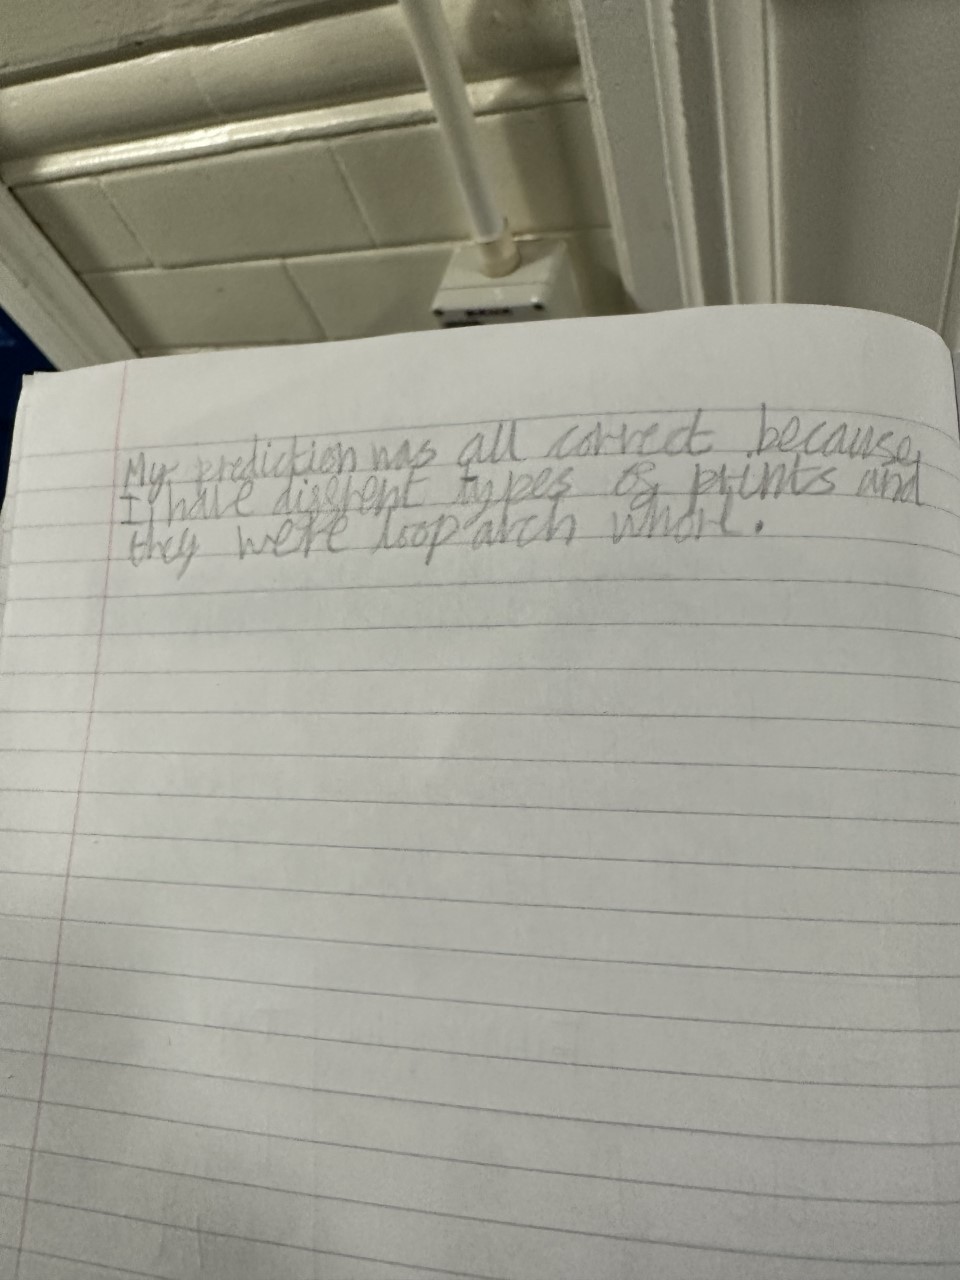 My prediction was all correct because
I have diffrent types of prints and
they were loop arch whorl.